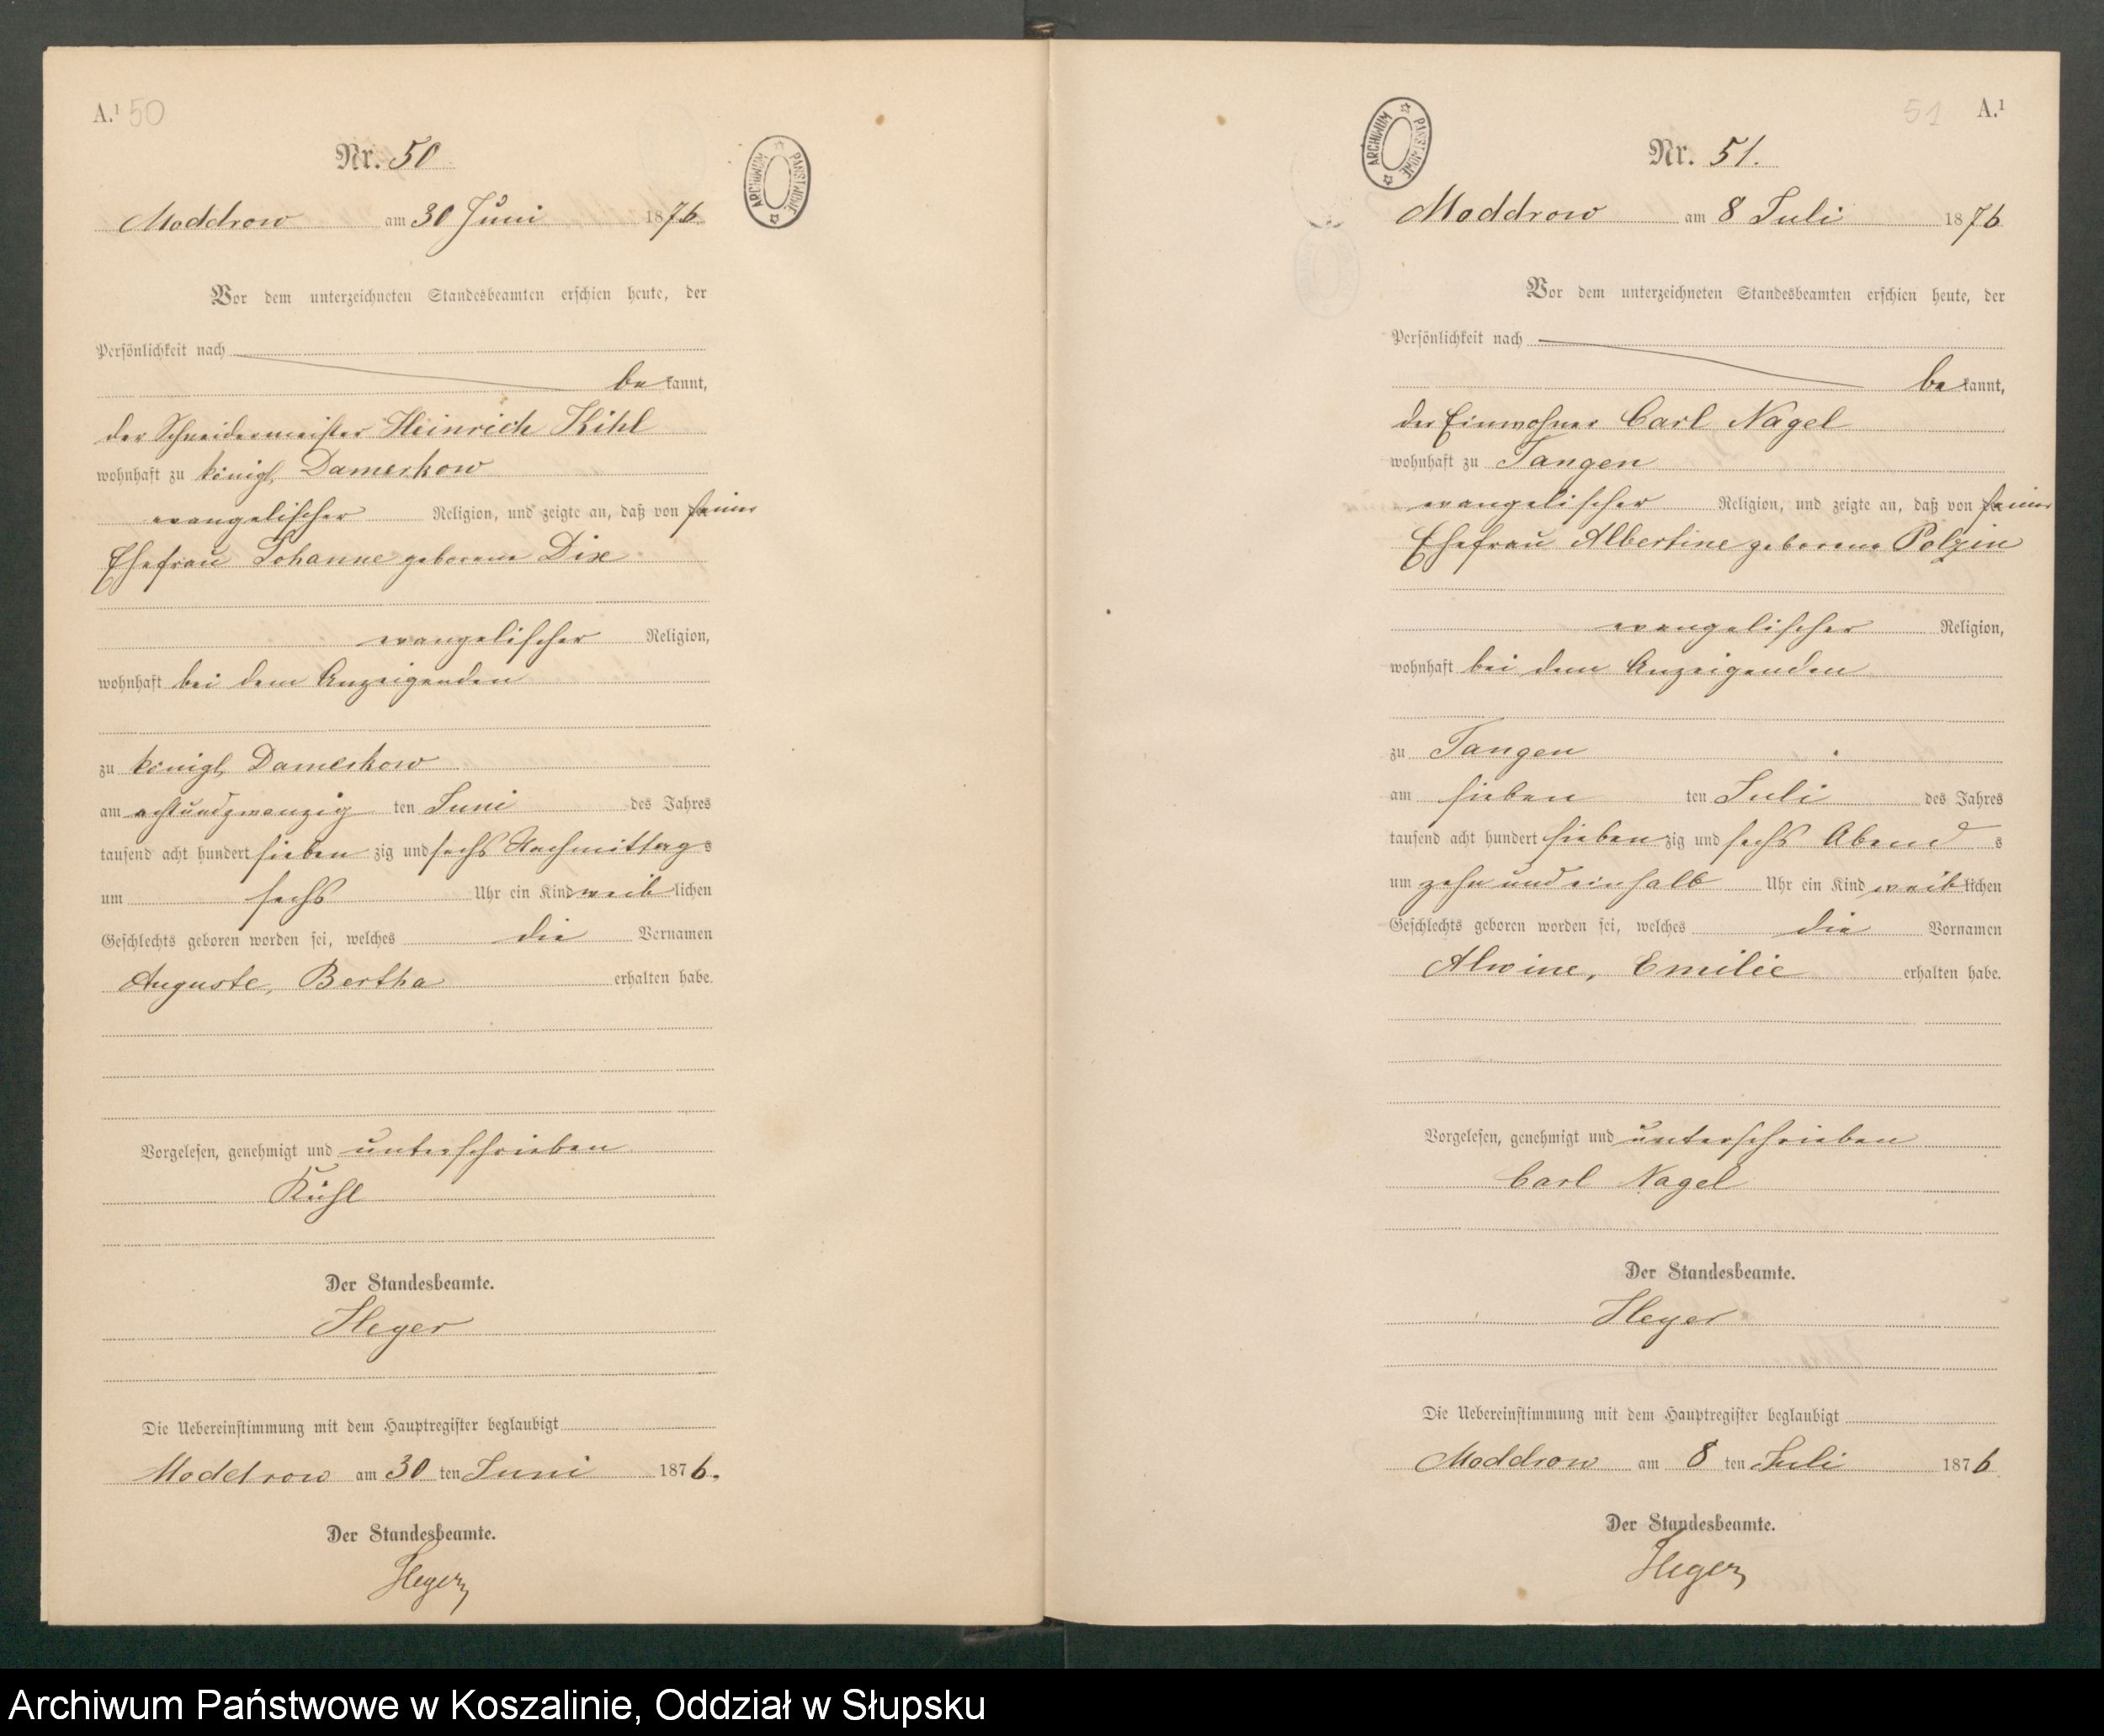 A.¹ 50
Nr. 50
Moddrow am 30 Juni 1876.
Vor dem unterzeichneten Standesbeamten erschien heute, der
Persönlichkeit nach
bekannt,
der Schneidermeister Heinrich Kihl
wohnhaft zu königl. Damerkow
evangelischer Religion, und zeigte an, daß von seiner
Ehefrau Johanne geborene Dix
evangelischer Religion,
wohnhaft bei dem Anzeigenden
zu königl. Damerkow
am achtundzwanzig ten Juni des Jahres
tausend acht hundert sieben zig und sechs Nachmittags
um sechs Uhr ein Kind weiblichen
Geschlechts geboren worden sei, welches die Vornamen
Auguste, Bertha erhalten habe.
Vorgelesen, genehmigt und unterschrieben
Kühl
Der Standesbeamte.
Heger
Die Uebereinstimmung mit dem Hauptregister beglaubigt
Moddrow am 30 ten Juni 1876.
Der Standesbeamte.
Heger
ARCHIWUM PAŃSTWOWE
51 A.¹
Nr. 51.
Moddrow am 8 Juli 1876
Vor dem unterzeichneten Standesbeamten erschien heute, der
Persönlichkeit nach
bekannt,
der Einwohner Carl Nagel
wohnhaft zu Tangen
evangelischer Religion, und zeigte an, daß von seiner
Ehefrau Albertine geborene Polzin
evangelischer Religion,
wohnhaft bei dem Anzeigenden
zu Tangen
am sieben ten Juli des Jahres
tausend acht hundert sieben zig und sechs Abend s
um zehn und ein halb Uhr ein Kind weiblichen
Geschlechts geboren worden sei, welches die Vornamen
Alwine, Emilie erhalten habe.
Vorgelesen, genehmigt und unterschrieben
Carl Nagel
Der Standesbeamte.
Heger
Die Uebereinstimmung mit dem Hauptregister beglaubigt
Moddrow am 8 ten Juli 1876
Der Standesbeamte.
Heger
ARCHIWUM PAŃSTWOWE
Archiwum Państwowe w Koszalinie, Oddział w Słupsku